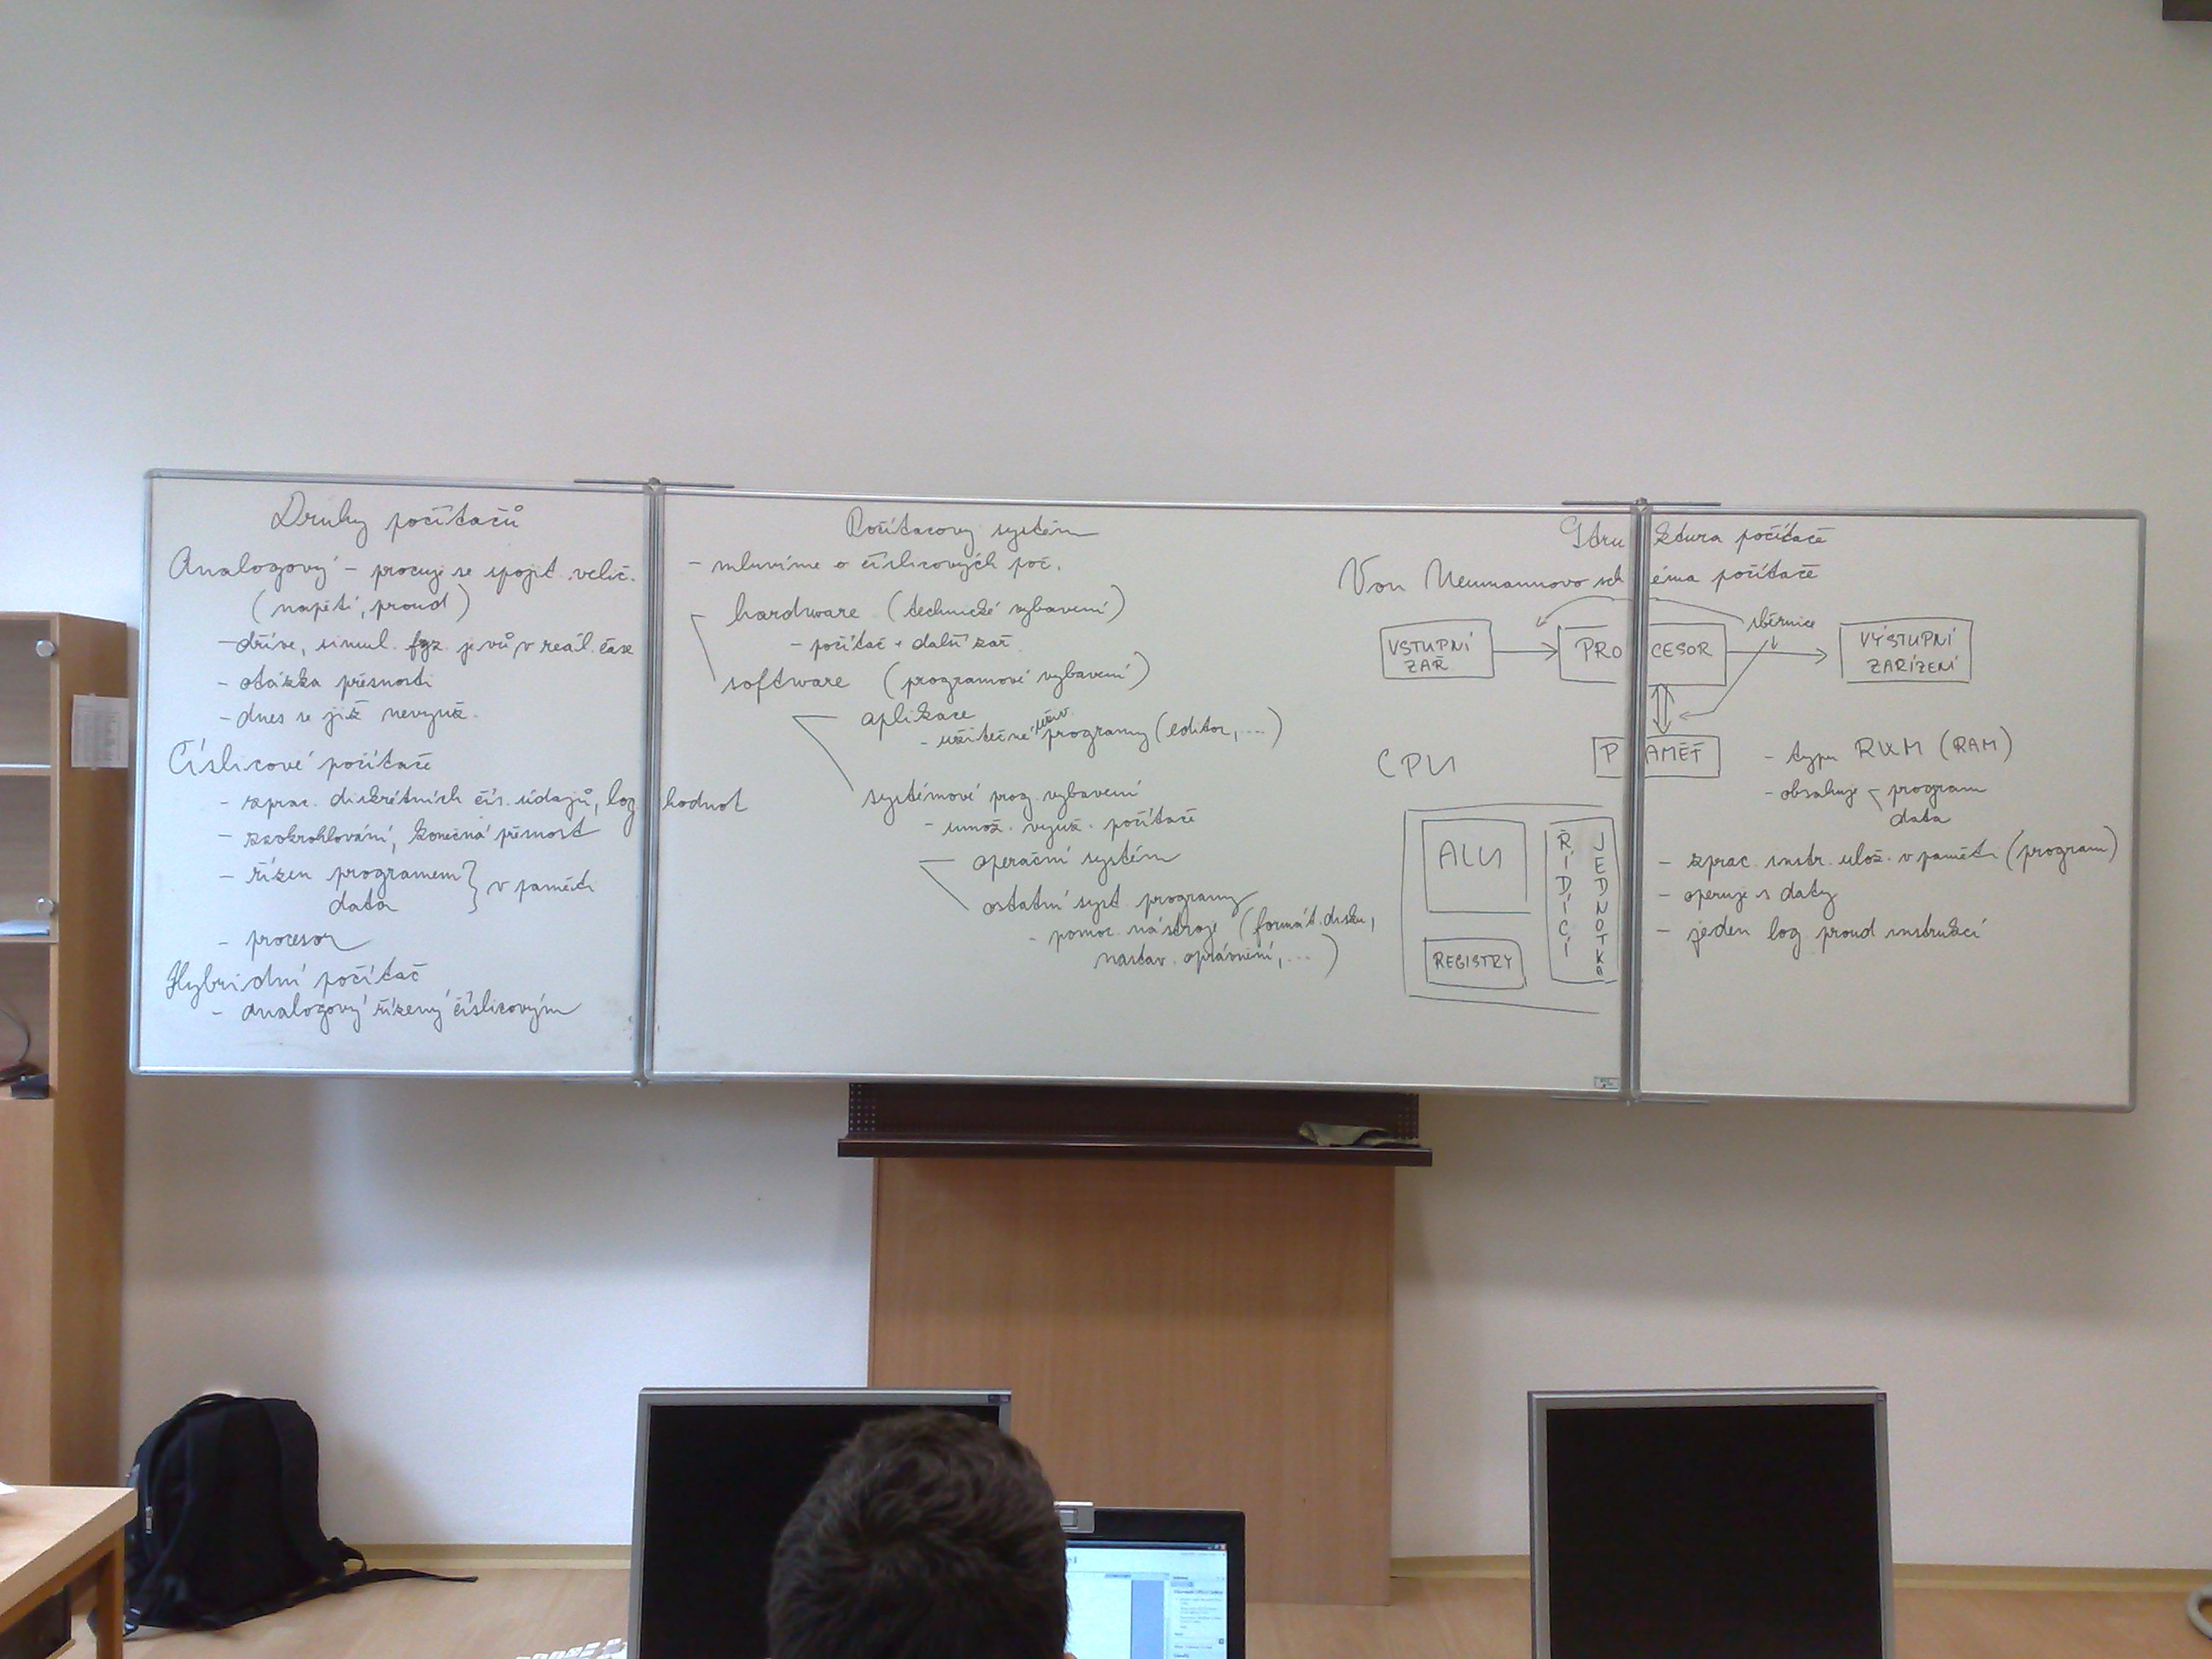 Druhy počítačů
Analogový - pracuje se spojit. velič.
(napětí, proud)
- dříve, simul. fyz. jevů v reál. čase
- otázka přesnosti
- dnes se již nevyuž.
Číslicové počítače
- zprac. diskrétních čís. údajů, log hodnot
- zaokrohlování, konečná přesnost
- řízen programem } v paměti
data
- procesor
Hybridní počítač
- analogový řízený číslicovým
Počítacovy systém
- mluvíme o číslicových poč.
hardware (technické vybavení)
- počítač + další zař.
software (programové vybavení)
aplikace
- užitečné uživ. programy (editor, ...)
systémové prog. vybavení
- umož. využ. počítače
operační systém
ostatní syst. programy
- pomoc. nástroje (formát. disku,
nastav. oprávnění, ...)
Struktura počítače
Von Neumannovo schéma počítače
sběrnice
VSTUPNÍ
ZAŘ
PROCESOR
VÝSTUPNÍ
ZAŘÍZENÍ
PAMĚŤ
- typu RWM (RAM)
- obsahuje program
data
CPU
ALU
REGISTRY
ŘÍDÍCÍ
JEDNOTKA
- zprac. instr. ulož. v paměti (program)
- operuje s daty
- jeden log proud instrukcí